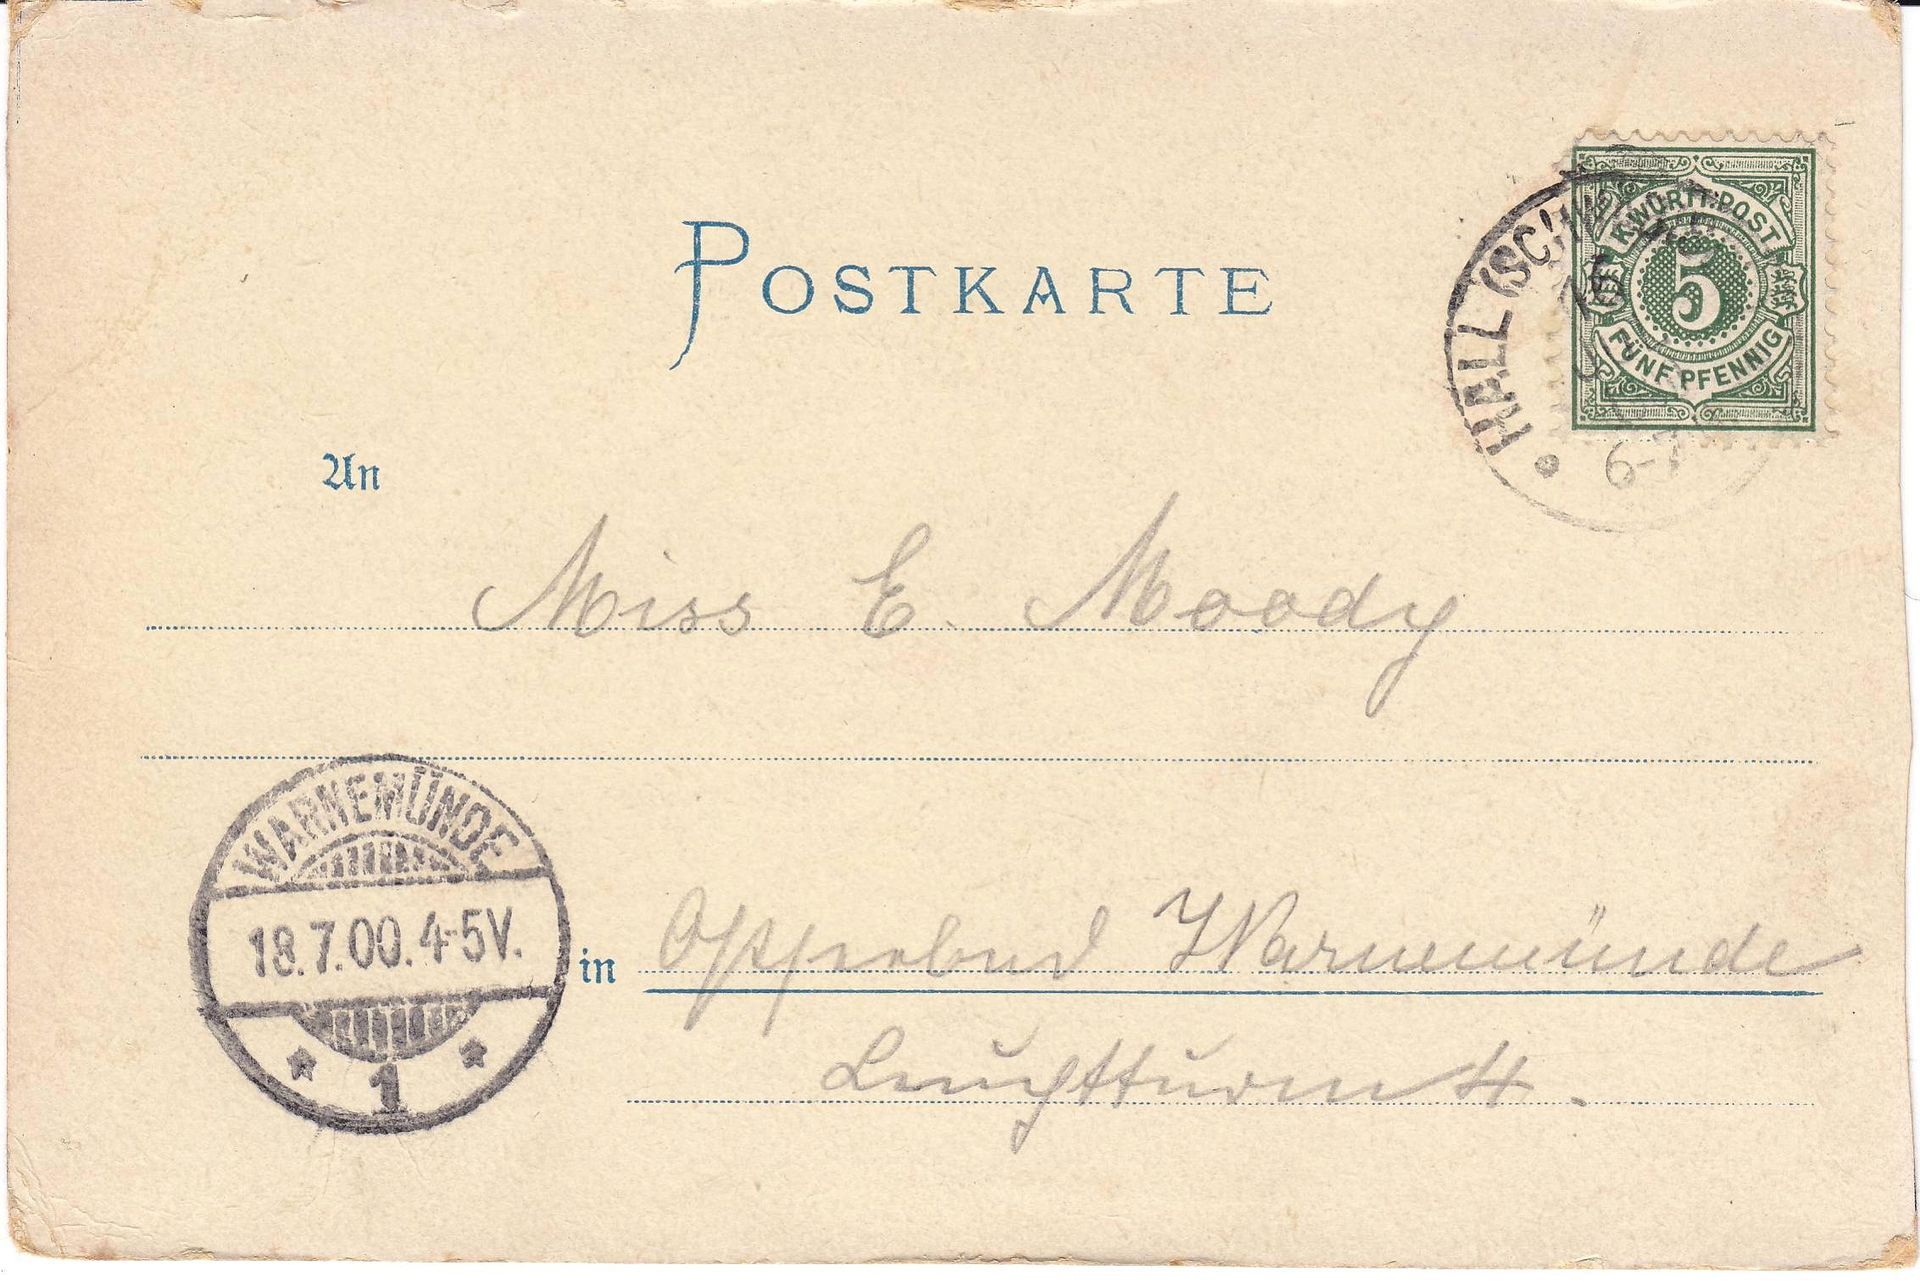 POSTKARTE
K.WÜRTT.POST
5
FÜNF PFENNIG
HALL (SCHW
16
6-7
An
Miss E. Moody
WARNEMÜNDE
18.7.00.4-5V.
1
in Warnemünde
Leuchtturm 4.